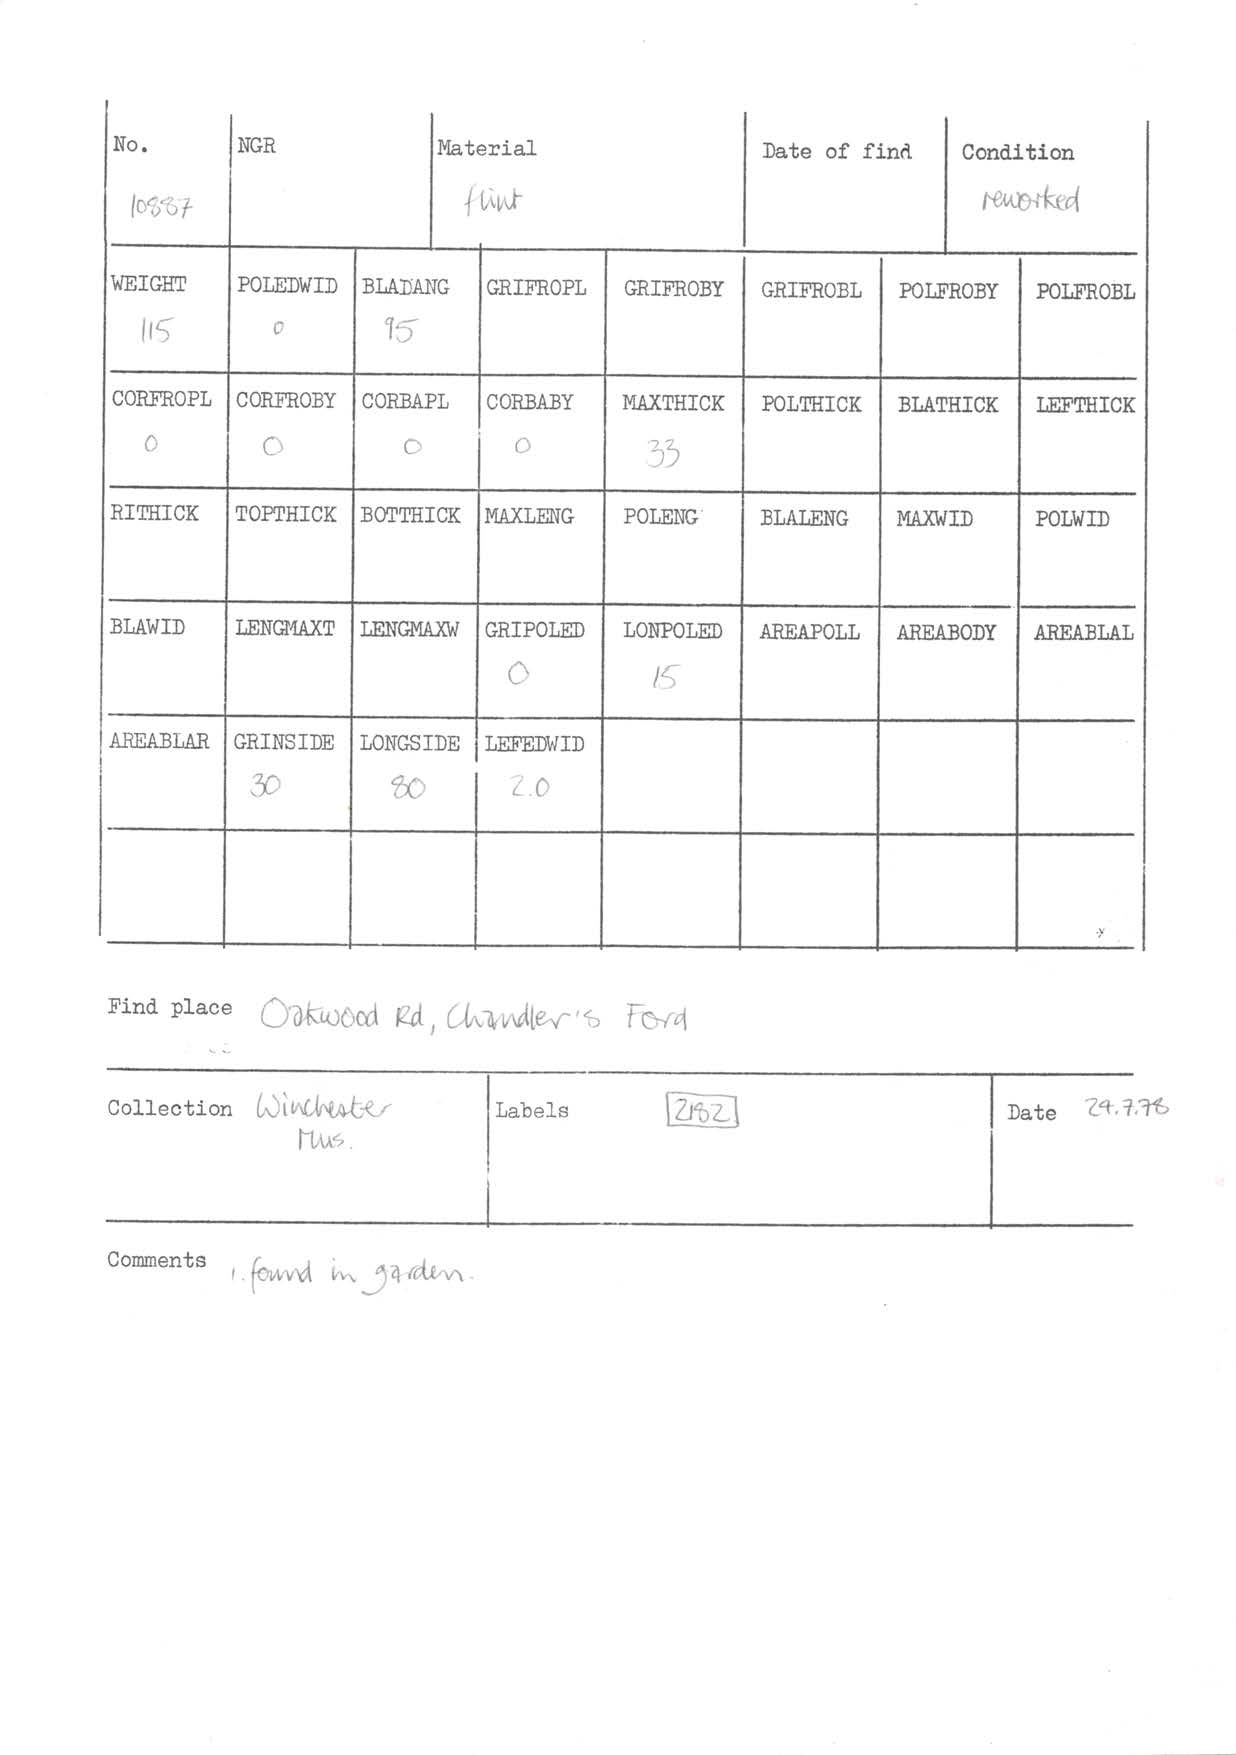 No. NGR Material Date of find Condition
10887 flint reworked
WEIGHT POLEDWID BLADANG GRIFROPL GRIFROBY GRIFROBL POLFROBY POLFROBL
115 0 95
CORFROPL CORFROBY CORBAPL CORBABY MAXTHICK POLTHICK BLATHICK LEFTHICK
0 0 0 0 33
RITHICK TOPTHICK BOTTHICK MAXLENG POLENG BLALENG MAXWID POLWID
BLAWID LENGMAXT LENGMAXW GRIPOLED LONPOLED AREAPOLL AREABODY AREABLAL
0 15
AREABLAR GRINSIDE LONGSIDE LEFEDWID
30 80 2.0
Find place Oakwood Rd, Chandler's Ford
Collection Winchester Labels 2182 Date 24.7.78
Mus.
Comments 1. found in garden.